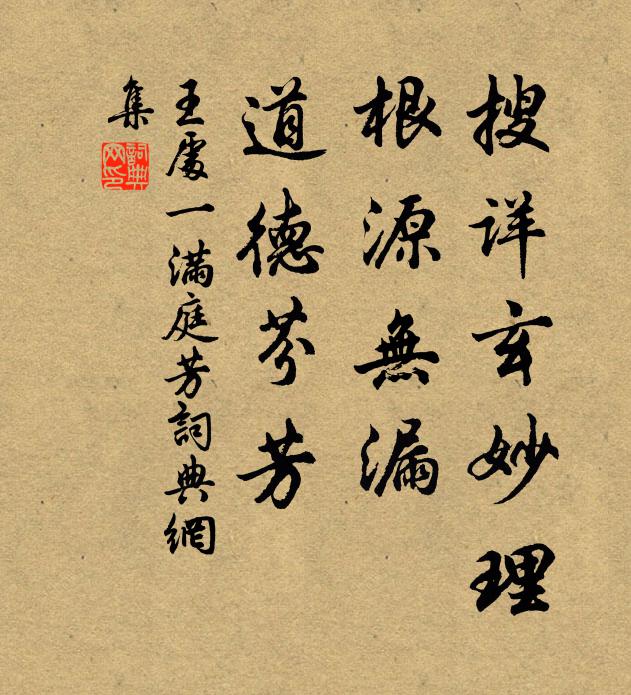 搜详玄妙理
根源無漏
道德芬芳
王處一滿庭芳詞典網
集
詞典
网印